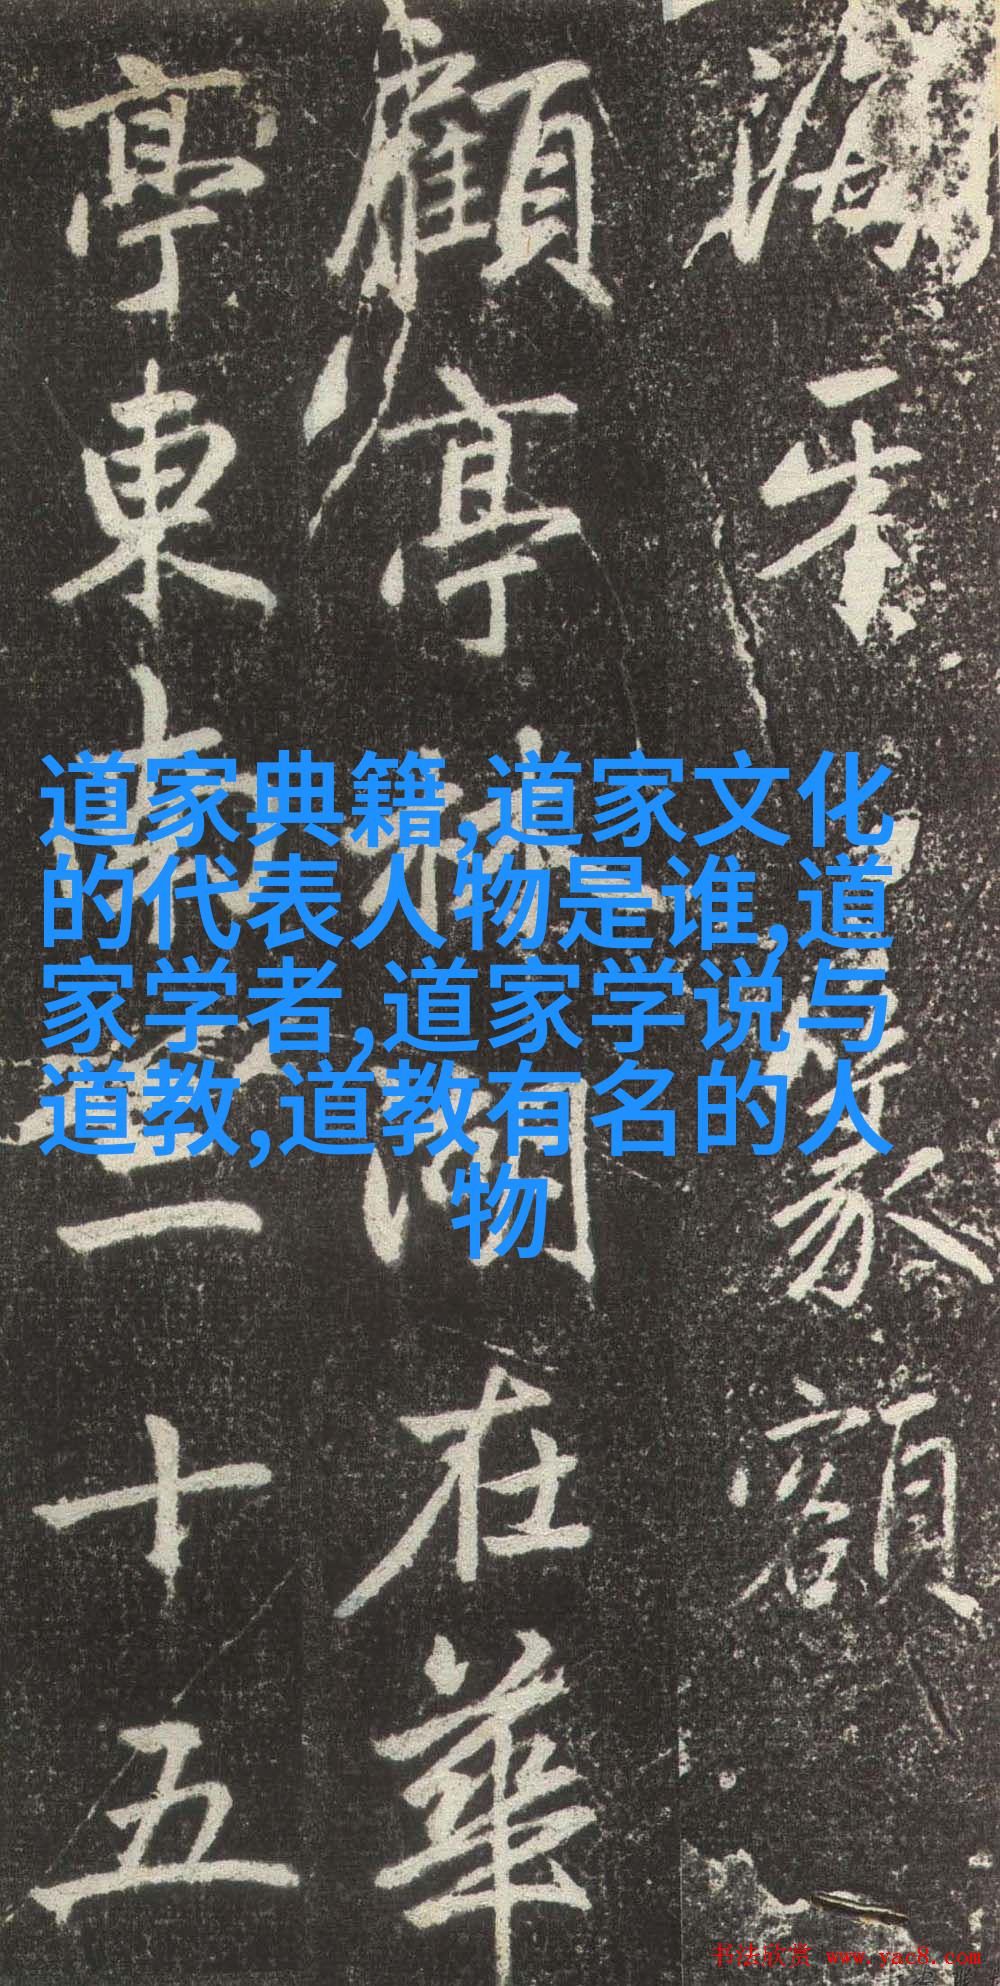 顧亭林湖在華
亭東南三十五
道家典籍,道家文化
的代表人物是谁,道
家学者,道家学说与
道教,道教有名的人
物
书法欣赏 www.yac8.com